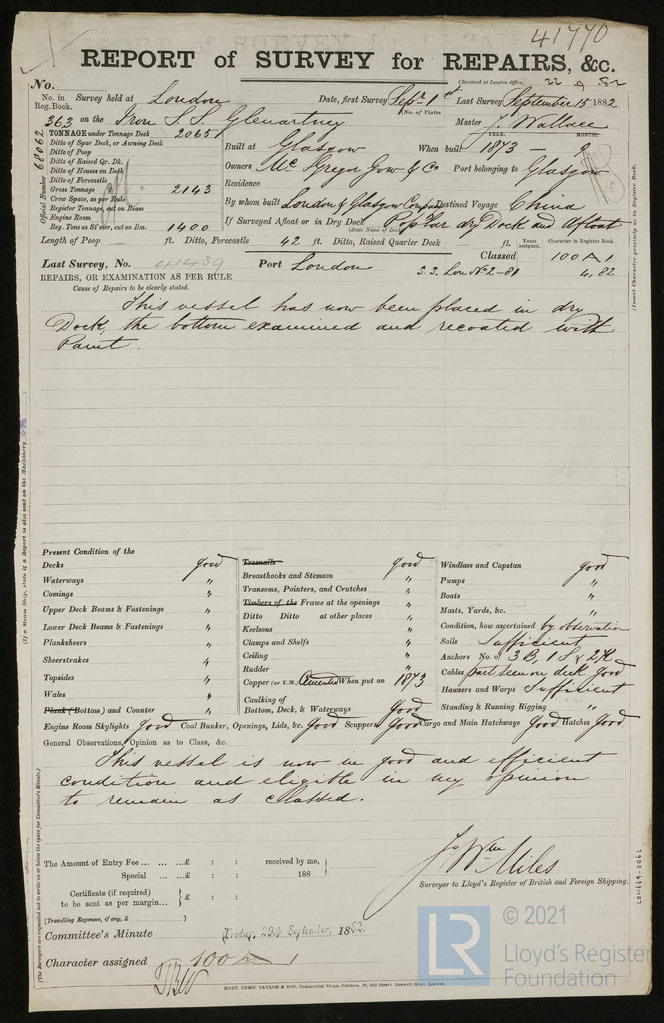 41770
REPORT of SURVEY for REPAIRS, &c.
(Received at London Office, 22 9 82
No.
No. in Reg. Book. Survey held at London Date, first Survey Sepr. 1st Last Survey September 15 1882
(No. of Visits
363 on the Iron S.S. Glenartney Master J. Wallace
TONNAGE under Tonnage Deck 2065
YEAR. MONTH.
Ditto of Spar Deck, or Awning Deck
Built at Glasgow When built 1873 - 9
Ditto of Poop
Ditto of Raised Qr. Dk.
Owners Mc Gregor Gow & Co Port belonging to Glasgow
Ditto of Houses on Deck
Ditto of Forecastle
Residence
Gross Tonnage 2143
Crew Space, as per Rule
By whom built London & Glasgow Compy Destined Voyage China
Register Tonnage, cut on Beam
Engine Room
If Surveyed Afloat or in Dry Dock Poplar dry Dock and Afloat
(State Name of Dock)
Reg. Tons as St'mer, cut on Bm. 1400
Official Number 68062
Length of Poop ft. Ditto, Forecastle 42 ft. Ditto, Raised Quarter Deck ft. Years assigned. Character in Register Book.
Last Survey, No. 41439 Port London Classed 100 A 1
S.S. Lon No 2-81 4,82
REPAIRS, OR EXAMINATION AS PER RULE
Cause of Repairs to be clearly stated.
(Insert Character precisely as in Register Book.
This vessel has now been placed in dry
Dock, the bottom examined and recoated with
Paint.
(If a Steam Ship, state if a Report is also sent on the Machinery
Present Condition of the
Decks good
Waterways "
Comings "
Upper Deck Beams & Fastenings "
Lower Deck Beams & Fastenings "
Planksheers "
Sheerstrakes "
Topsides "
Wales "
Plank (Bottom) and Counter "
Treenails good
Breasthooks and Stemson "
Transoms, Pointers, and Crutches "
Timbers of the Frame at the openings "
Ditto Ditto at other places "
Keelsons "
Clamps and Shelfs "
Ceiling "
Rudder "
Copper (or Y.M.) Cemented When put on 1873
Caulking of
Bottom, Deck, & Waterways Good
Windlass and Capstan good
Pumps "
Boats "
Masts, Yards, &c. "
Condition, how ascertained by observation
Sails Sufficient
Anchors No. of 3 B, 1 S & 2 K
Cables part seen on deck good
Hawsers and Warps Sufficient
Standing & Running Rigging "
Engine Room Skylights Good Coal Bunker, Openings, Lids, &c. Good Scuppers Good Cargo and Main Hatchways Good Hatches Good
General Observations, Opinion as to Class, &c.
This vessel is now in good and efficient
condition and eligible in my opinion
to remain as classed.
(The Surveyors are requested not to write on or below the space for Committee's Minute.)
The Amount of Entry Fee ... ... ... £ : : received by me,
Special ... ... £ : : 188
Certificate (if required)
to be sent as per margin... £ : :
(Travelling Expenses, if any, £
Jo Wm Miles
Surveyor to Lloyd's Register of British and Foreign Shipping.
Committee's Minute Friday, 22nd September, 1882.
Character assigned 100 A 1
ROBT. EDMD. TAYLOR & SON, Commercial Steam Printers, 19, Old Street Goswell Road, London.
LON669-0062
LR
© 2021
Lloyd's Register
Foundation